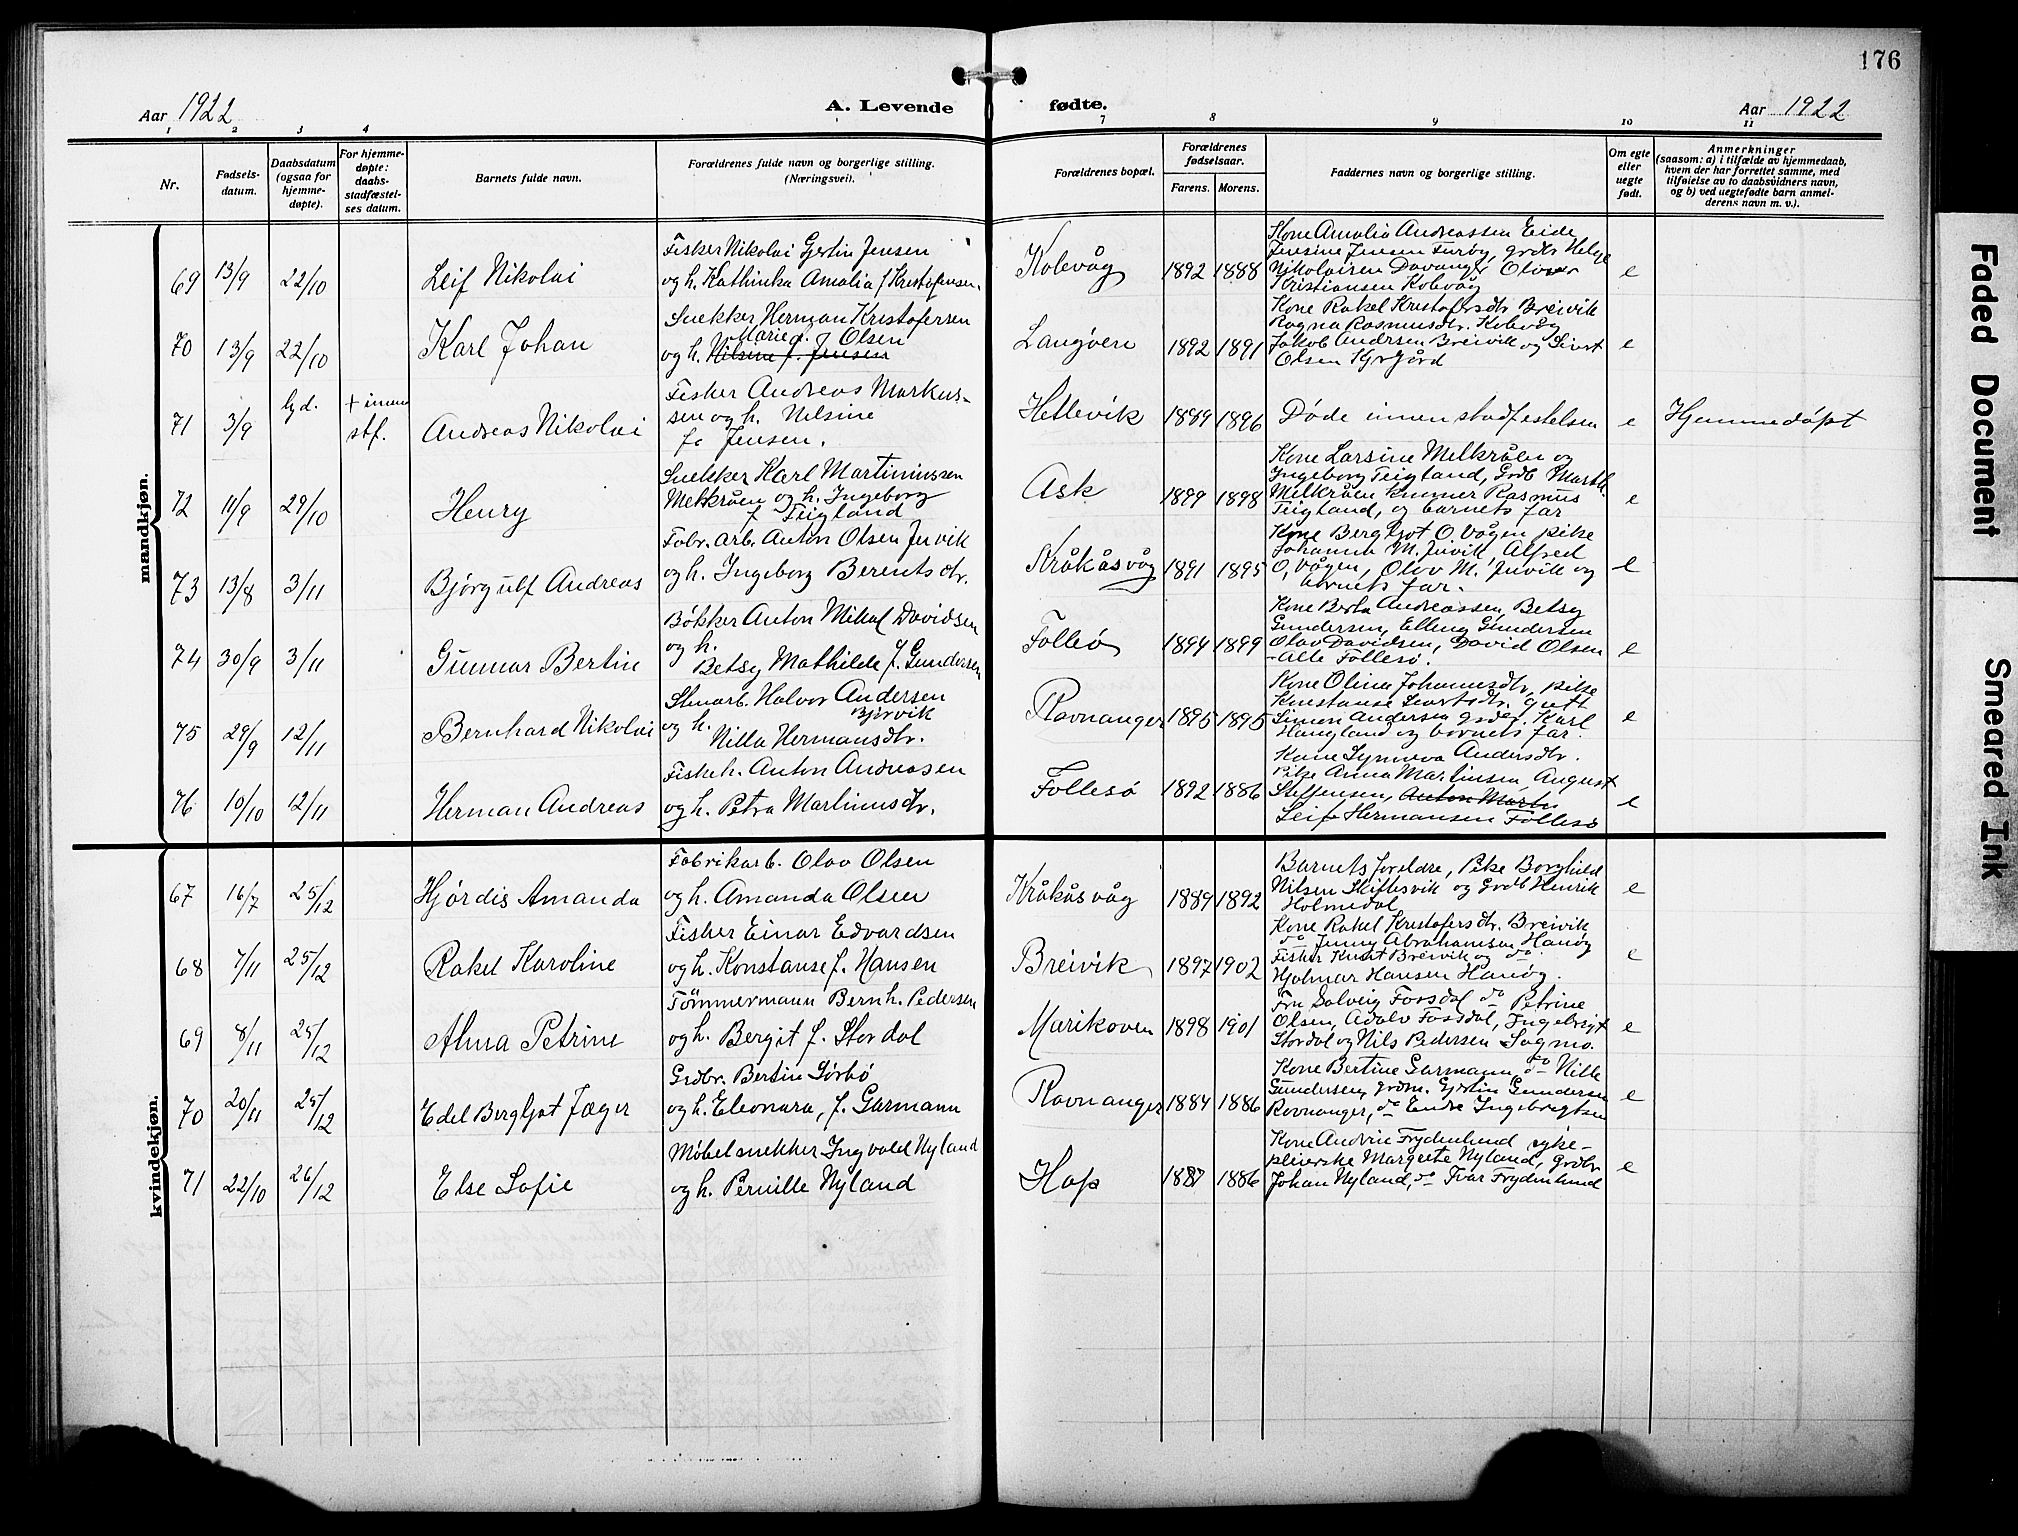 176
Aar 1922
A. Levende
fødte.
Aar 1922
1 2 3 4 7 8 9 10 11
Nr.
Fødsels-
datum.
Daabsdatum
(ogsaa for
hjemme-
døpte).
For hjemme-
døpte:
daabs-
stadfæstel-
ses datum.
Barnets fulde navn.
Forældrenes fulde navn og borgerlige stilling.
(Næringsvei).
Forældrenes bopæl.
Forældrenes
fødselsaar.
Farens.
Morens.
Faddernes navn og borgerlige stilling.
Om egte
eller
uegte
født.
Anmerkninger
(saasom: a) i tilfælde av hjemmedaab,
hvem der har forrettet samme, med
tilføielse av to daabsvidners navn,
og b) ved uegtefødte barn anmel-
derens navn m. v.).
mandkjøn.
69 13/9 22/10 Leif Nikolai
Fisker Nikolai Gjertin Jensen
og h. Kathinka Amalia f Kristofensen.
Kolevåg 1892 1888
Kone Amalia Andreassen Eide
Jensine Jensen Turøy, grdbr Helge
Nikolaisen Davanger Oliver
Kristiansen Kolevåg
e
70 13/9 22/10 Karl Johan
Snekker Herman Kristofersen
Marie f. Olsen
og h. Nilsine f. Jensen
Langøen 1892 1891
Kone Rakel Kristofersdtr Breivik
Ragna Rasmusdtr. Kolevåg
Jakob Andersen Breivik og Sivert
Olsen
e
71 3/9 hjd. + innen
stf.
Andreas Nikolai
Fisker Andreas Markus-
sen og h. Nilsine
f. Jensen.
Hellevik 1889 1896
Døde innen stadfestelsen
e
Hjemmedøpt
72 11/9 29/10 Henry
Snekker Karl Martinussen
Melkråen og h. Ingeborg
f Teigland
Ask 1899 1898
Kone Larsine Melkråen og
Ingeborg Teigland, Grdb
Melkråen Rasmus
Teigland, og barnets far
e
73 13/8 3/11 Bjørgulf Andreas
Fabr. arb. Anton Olsen Juvik
og h. Ingeborg Berentsdtr.
Kråkåsvåg 1891 1895
Kone Bergljot O. Vågen pike
Johanna M. Juvik Alfred
O. Vågen, Olav M. Juvik og
barnets far.
e
74 30/9 3/11 Gunnar Bertin
Bøkker Anton Mikal Davidsen
og h.
Betsy Mathilde f. Gundersen
Follesø 1894 1899
Kone Berta Andreassen, Betsy
Gundersen, Elling Gundersen
Olav Davidsen, David Olsen
- Alle Follesø.
e
75 29/9 12/11 Bernhard Nikolai
Stuarb. Halvor Andersen
Bjørvik
og h.
Nilla Hermansdtr.
Ravnanger 1895 1895
Kone Olina Johannesdtr, pike
Konstanse Sivertsdtr. gutt
Simon Andersen grdbr. Karl
Haugland og barnets far.
e
76 10/10 12/11 Herman Andreas
Fiskeh. Anton Andreasen
og h. Petra Martinusdtr.
Follesø 1892 1886
Kone Synneva Andersdtr.
Pike Anna Martinsen, August
Steffensen, Anton Martin
Leif Hermansen Follesø
e
kvindekjøn.
67 16/7 25/12 Hjørdis Amanda
Fabrikarb. Olav Olsen
og h. Amanda Olsen
Kråkåsvåg 1889 1892
Barnets foreldre, Pike Borghild
Nilsen Skiftesvik og Grdb Henrik
Holmedal
e
68 7/11 25/12 Rakel Karoline
Fisker Einar Edvardsen
og h. Konstanse f. Hansen
Breivik 1897 1902
Kone Rakel Kristofersdtr. Breivik
do Jenny Abrahamsen Hanøy
Fisker Knut Breivik og do.
Hjalmar Hansen Hanøy.
e
69 8/11 25/12 Alma Petrine
Tømmermann Bernh. Pedersen
og h. Bergit f. Stordal
Marikoven 1898 1901
Fru Solveig Fossdal do Petrine
Olsen, Adolv Fossdal, Ingebrigt
Stordal og Nils Pedersen Sagmo.
e
70 20/11 25/12 Edel Bergljot Jæger
Grdbr. Bertin Sørbø
og h. Eleonara, f. Garmann
Ravnanger 1884 1886
Kone Bertine Garmann, do Nille
Gundersen, grdm. Gjertin Gundersen
Ravnanger, do Endre Ingebrigtsen
e
71 22/10 26/12 Else Sofie
Møbelsnekker Ingvald Nyland
og h. Pernille Nyland
Hop 1887 1886
Kone Andrine Frydenlund syke-
pleierske Margrete Nyland, Grdbr
Johan Nyland, do Ivar Frydenlund
e
Faded Document
Smeared Ink